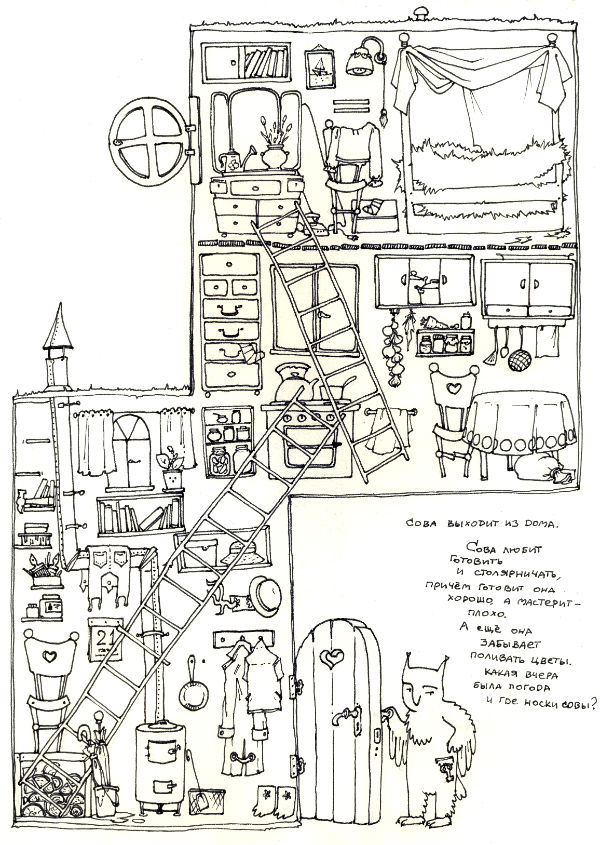 21
Сова выходит из дома.
Сова любит
готовить
и столярничать,
причём готовит она
хорошо, а мастерит –
плохо.
А ещё она
забывает
поливать цветы.
Какая вчера
была погода
и где носки совы?